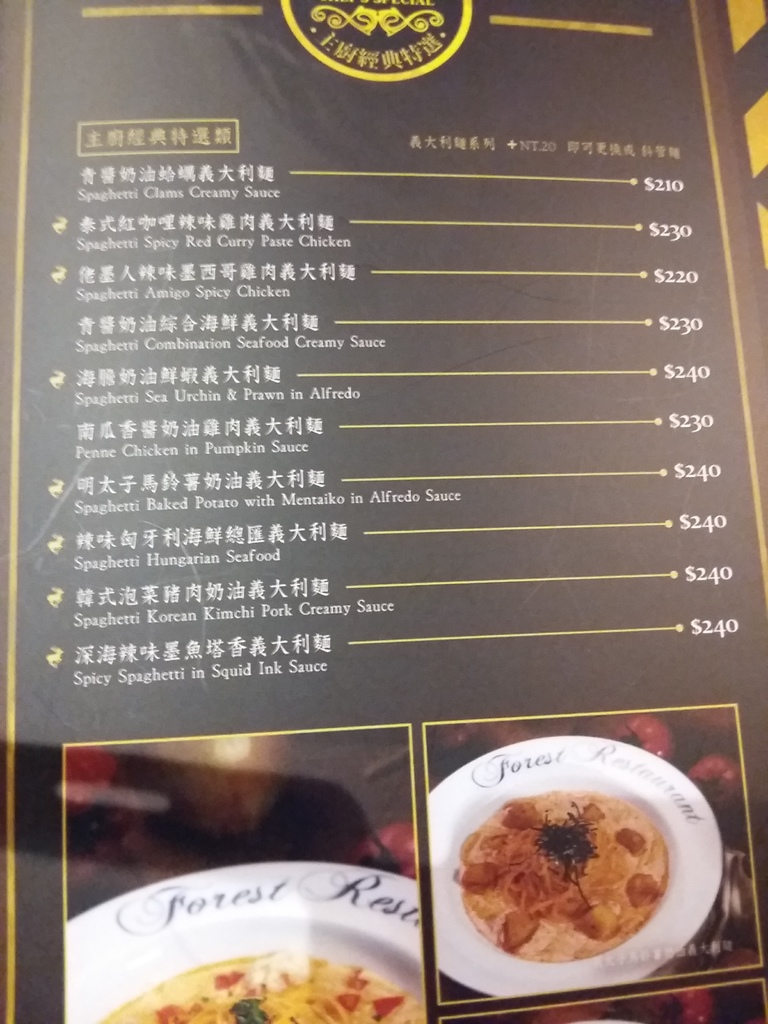 主廚經典特選
主廚經典特選類
義大利麵系列 +NT.20 即可更換成 斜管麵
青醬奶油蛤蠣義大利麵 $210
Spaghetti Clams Creamy Sauce
泰式紅咖哩辣味雞肉義大利麵 $230
Spaghetti Spicy Red Curry Paste Chicken
佬墨人辣味墨西哥雞肉義大利麵 $220
Spaghetti Amigo Spicy Chicken
青醬奶油綜合海鮮義大利麵 $230
Spaghetti Combination Seafood Creamy Sauce
海膽奶油鮮蝦義大利麵 $240
Spaghetti Sea Urchin & Prawn in Alfredo
南瓜香醬奶油雞肉義大利麵 $230
Penne Chicken in Pumpkin Sauce
明太子馬鈴薯奶油義大利麵 $240
Spaghetti Baked Potato with Mentaiko in Alfredo Sauce
辣味匈牙利海鮮總匯義大利麵 $240
Spaghetti Hungarian Seafood
韓式泡菜豬肉奶油義大利麵 $240
Spaghetti Korean Kimchi Pork Creamy Sauce
深海辣味墨魚塔香義大利麵 $240
Spicy Spaghetti in Squid Ink Sauce
Forest Restaurant
Forest Rest